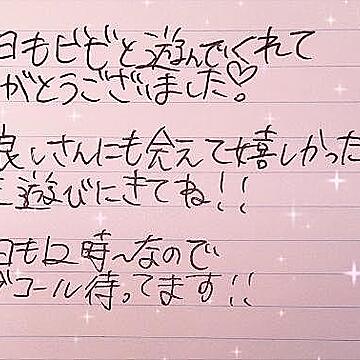 日もビビと遊んでくれて
がとうございました♡
良しさんにも会えて嬉しかった
遊びにきてね!!
日も12時〜なので
コール待ってます!!